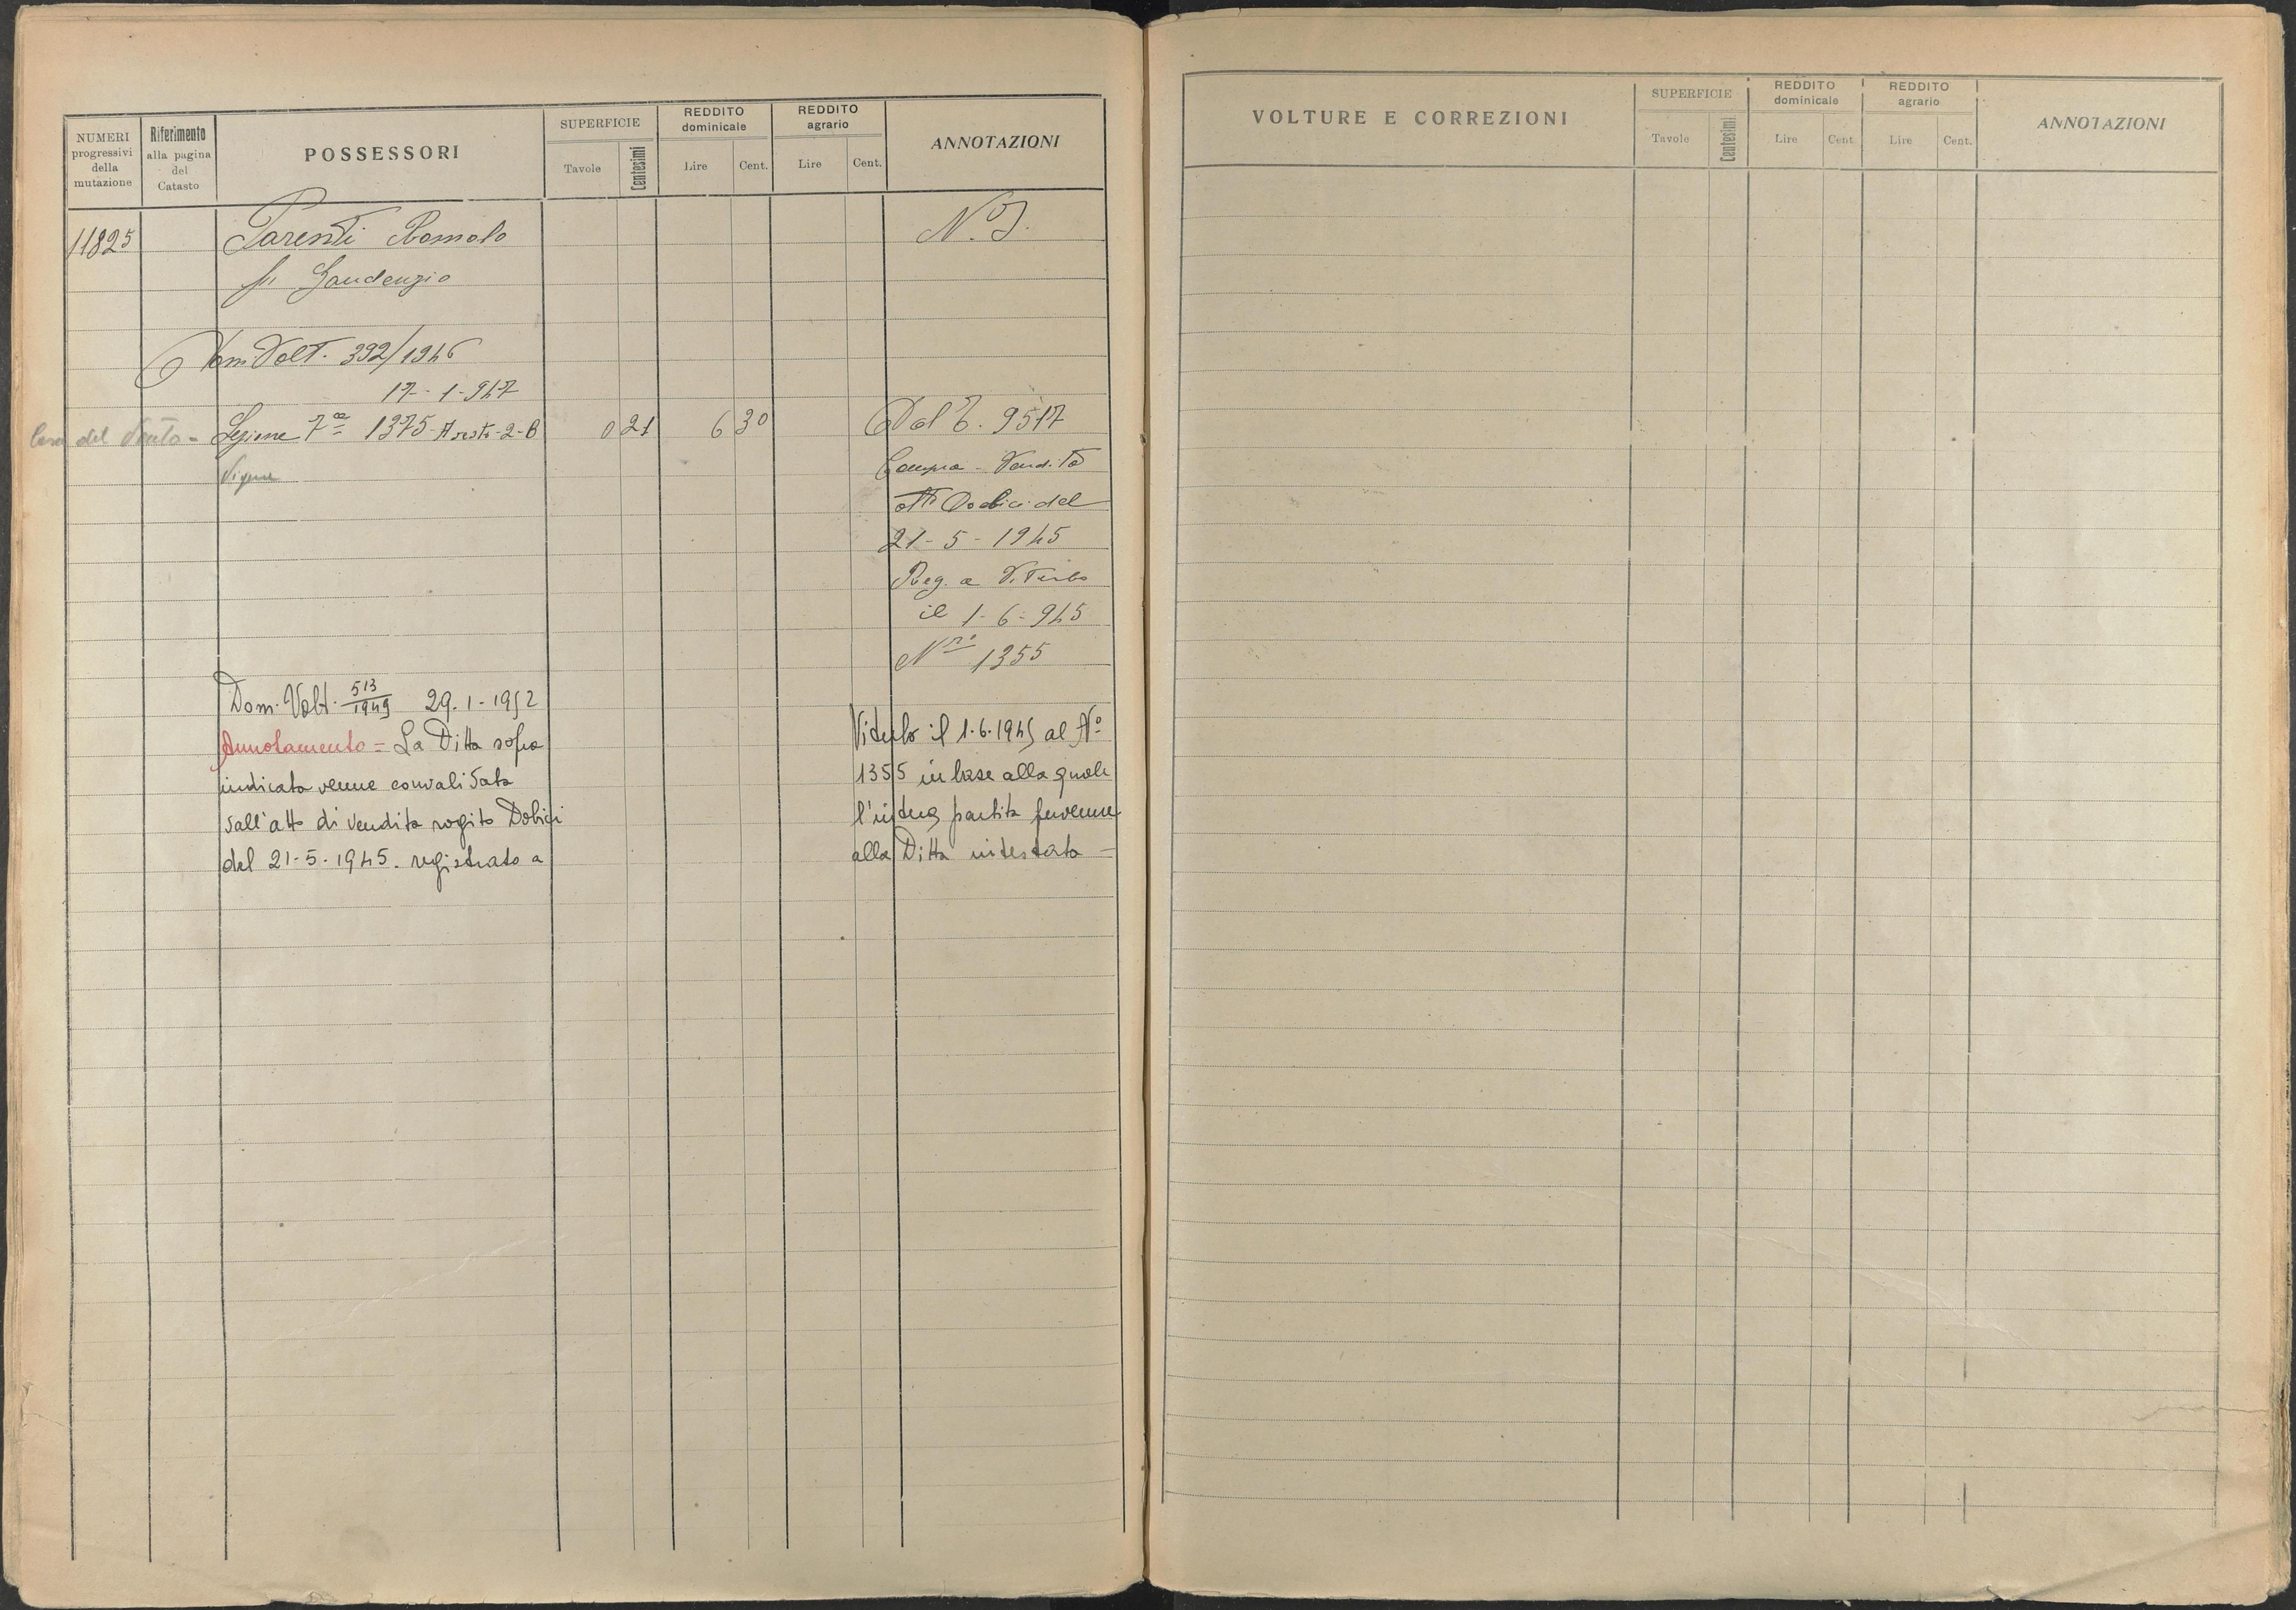 NUMERI progressivi della mutazione
Riferimento alla pagina del Catasto
POSSESSORI
SUPERFICIE
Tavole
Centesimi
REDDITO dominicale
Lire
Cent.
REDDITO agrario
Lire
Cent.
ANNOTAZIONI
11825
Parenti Romolo
N. I.
fu Gaudenzio
Dom Volt. 392/1946
17-1-947
Casa del Vento - Sezione 7ª 1375 2-B
0 21
6 30
Vigne
Dal T. 9517
Compra-Vendita
Atto Dobici del
21-5-1945
Reg. a Viterbo
il 1-6-945
Nro 1355
Dom. Volt. 513/1949 29.1-1952
Annotamento = La Ditta sopra
indicata venne convalidata
dall'atto di vendita rogito Dobici
del 21-5-1945. registrato a
Viterbo il 1.6.1945 al N°
1355 in base alla quale
l'intera partita pervenne
alla Ditta intestata -
VOLTURE E CORREZIONI
SUPERFICIE
Tavole
Centesimi
REDDITO dominicale
Lire
Cent
REDDITO agrario
Lire
Cent.
ANNOTAZIONI